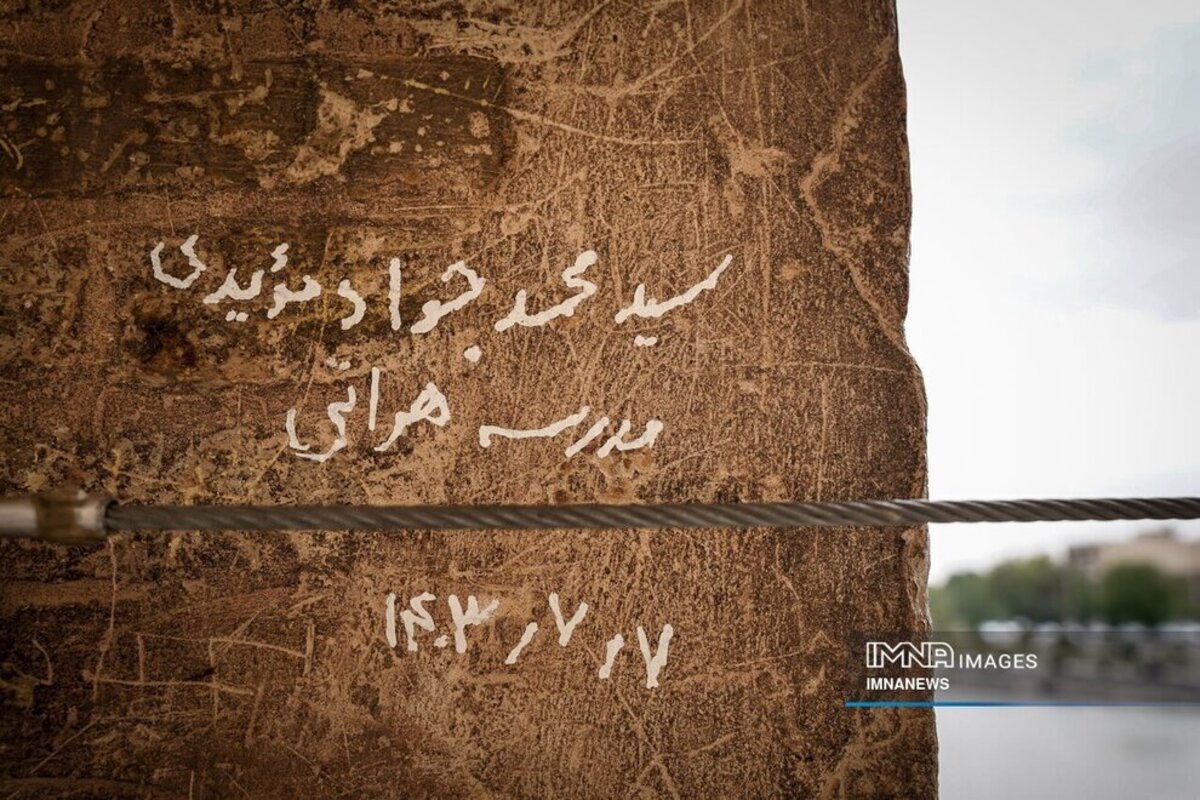 سید محمد جواد مؤیدی
مدرسه هراتی
۱۴۰۳ ر ۷ ر ۷
IMNA IMAGES
IMNANEWS